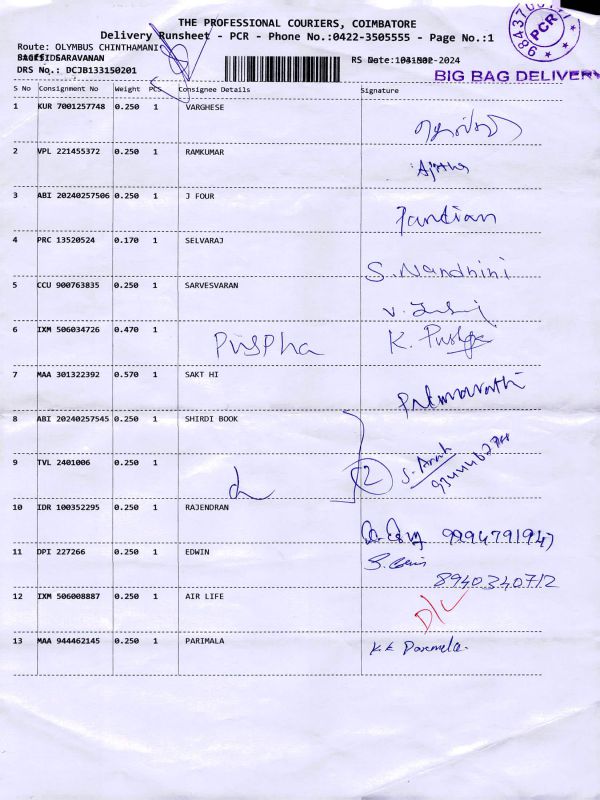 THE PROFESSIONAL COURIERS, COIMBATORE
Delivery Runsheet - PCR - Phone No.:0422-3505555 - Page No.:1
Route: OLYMBUS CHINTHAMANI
SARAVANAN
DRS No.: DCJB133150201
PCR
BIG BAG DELIVERY
S No Consignment No Weight PCS Consignee Details Signature
1 KUR 7001257748 0.250 1 VARGHESE
2 VPL 221455372 0.250 1 RAMKUMAR
3 ABI 20240257506 0.250 1 J FOUR Pandian
4 PRC 13520524 0.170 1 SELVARAJ S. Nandhini
5 CCU 900763835 0.250 1 SARVESVARAN
6 IXM 506034726 0.470 1 Puspha K. Puspa
7 MAA 301322392 0.570 1 SAKT HI
8 ABI 20240257545 0.250 1 SHIRDI BOOK
9 TVL 2401006 0.250 1 2
10 IDR 100352295 0.250 1 RAJENDRAN 9994791947
11 DPI 227266 0.250 1 EDWIN
8940340712
12 IXM 506008887 0.250 1 AIR LIFE D/L
13 MAA 944462145 0.250 1 PARIMALA